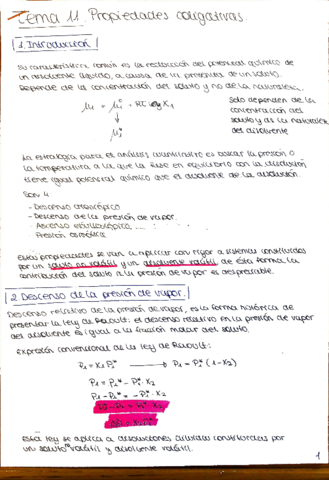 Tema 11. Propiedades coligativas.
1. Introducción
Su característica común es la reducción del potencial químico de
un disolvente líquido, a causa de la presencia de un soluto.
Depende de la concentración del soluto y no de la naturaleza.
Solo dependen de la
concentración del
soluto y de la naturaleza
del disolvente
La estrategia para el análisis cuantitativo es buscar la presión o
la temperatura a la que la fase en equilibrio con la disolución
tiene igual potencial químico que el disolvente de la disolución.
Son 4
- Descenso crioscópico
- Descenso de la presión de vapor.
- Ascenso ebulloscópico
- Presión osmótica
Estas propiedades se van a aplicar con rigor a sistemas constituidos
por un soluto no volátil y un disolvente volátil, de esta forma la
contribución del soluto a la presión de vapor es despreciable.
2. Descenso de la presión de vapor.
Descenso relativo de la presión de vapor, es la forma histórica de
presentar la ley de Raoult: el descenso relativo en la presión de vapor
del disolvente es igual a la fracción molar del soluto.
Expresión convencional de la ley de Raoult:
P₁ = X₁ P₁* → P₁ = P₁* (1-X₂)
P₁ = P₁* - P₁* · X₂
P₁ - P₁* = - P₁* · X₂
Esta ley se aplica a disoluciones diluidas constituidas por
un soluto volátil y disolvente volátil.
1